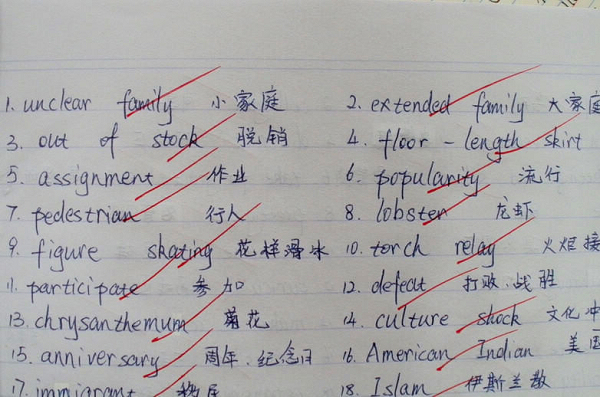 1. unclear family 小家庭 2. extended family 大家庭
3. out of stock 脱销 4. floor-length skirt
5. assignment 作业 6. popularity 流行
7. pedestrian 行人 8. lobster 龙虾
9. figure skating 花样滑冰 10. torch relay 火炬接
11. participate 参加 12. defeat 打败.战胜
13. chrysanthemum 菊花 14. culture shock 文化冲
15. anniversary 周年.纪念日 16. American Indian 美国
17. immigrant 移民 18. Islam 伊斯兰教